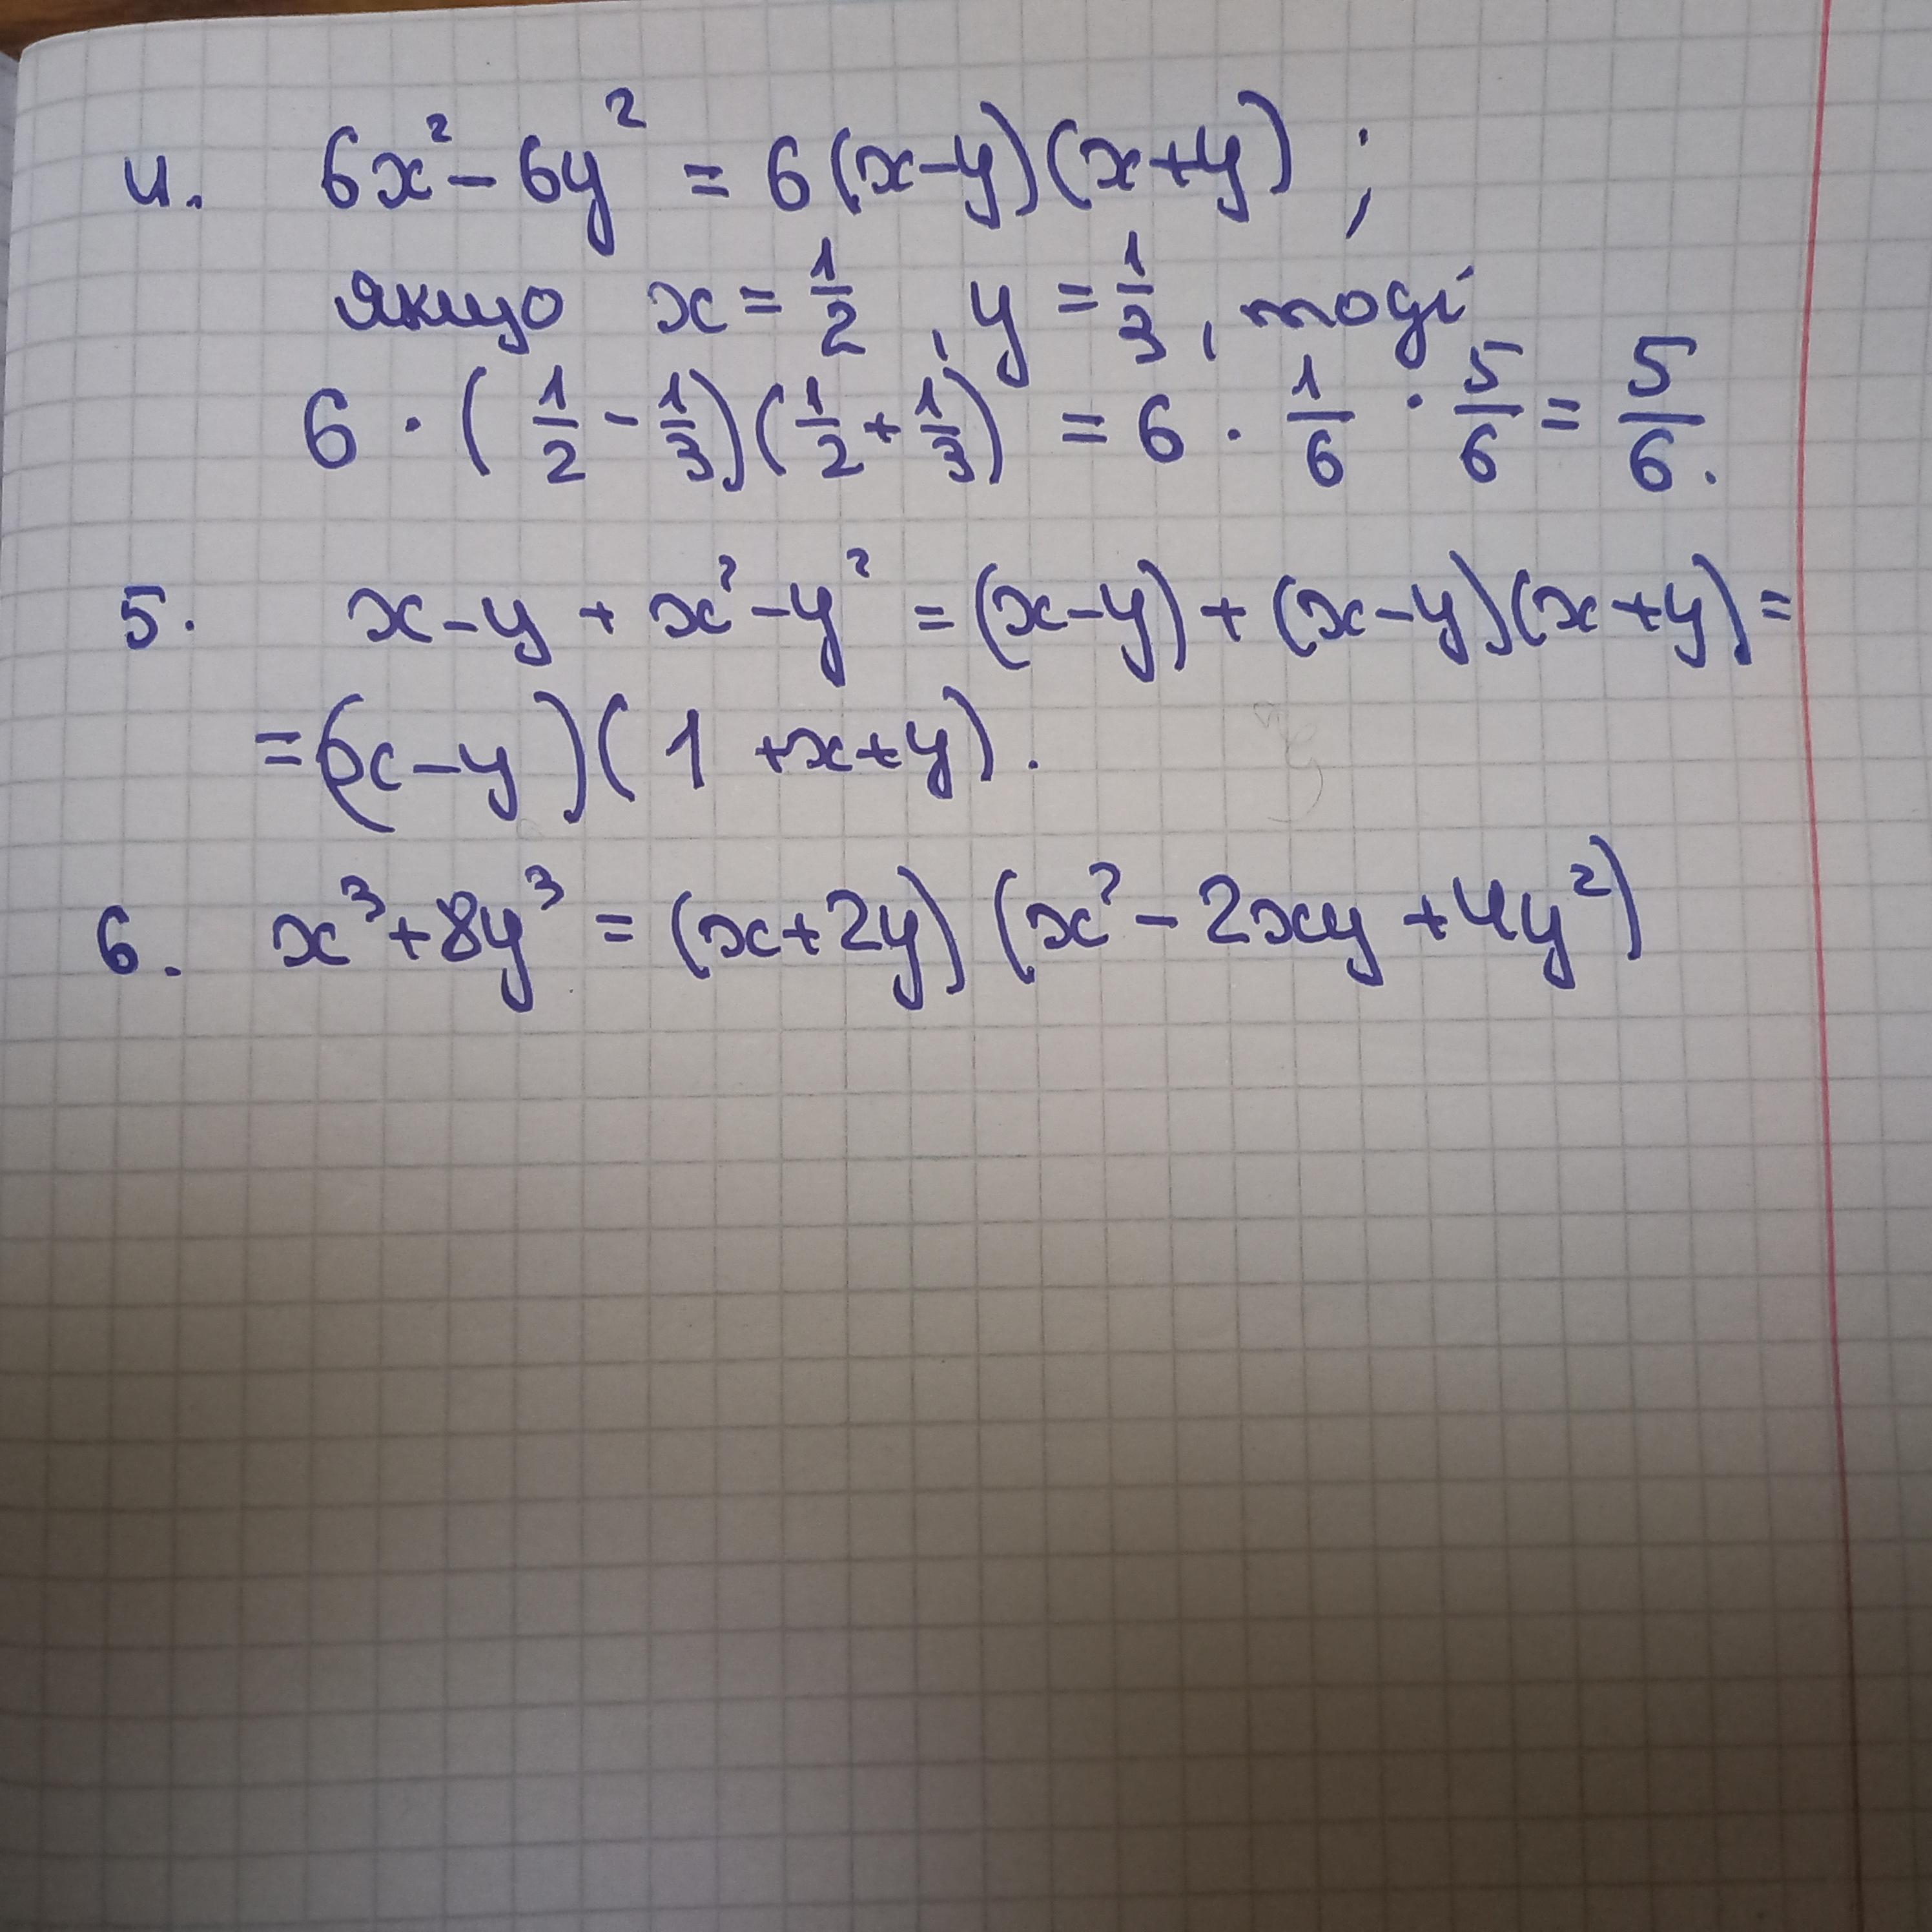 4. 6x² - 6y² = 6(x-y)(x+y) ;
якщо x = 1/2 , y = 1/3 , тоді
6 · (1/2 - 1/3)(1/2 + 1/3) = 6 · 1/6 · 5/6 = 5/6.
5. x - y + x² - y² = (x-y) + (x-y)(x+y) =
= (x-y)(1 +x+y).
6. x³ + 8y³ = (x+2y) (x² - 2xy + 4y²)